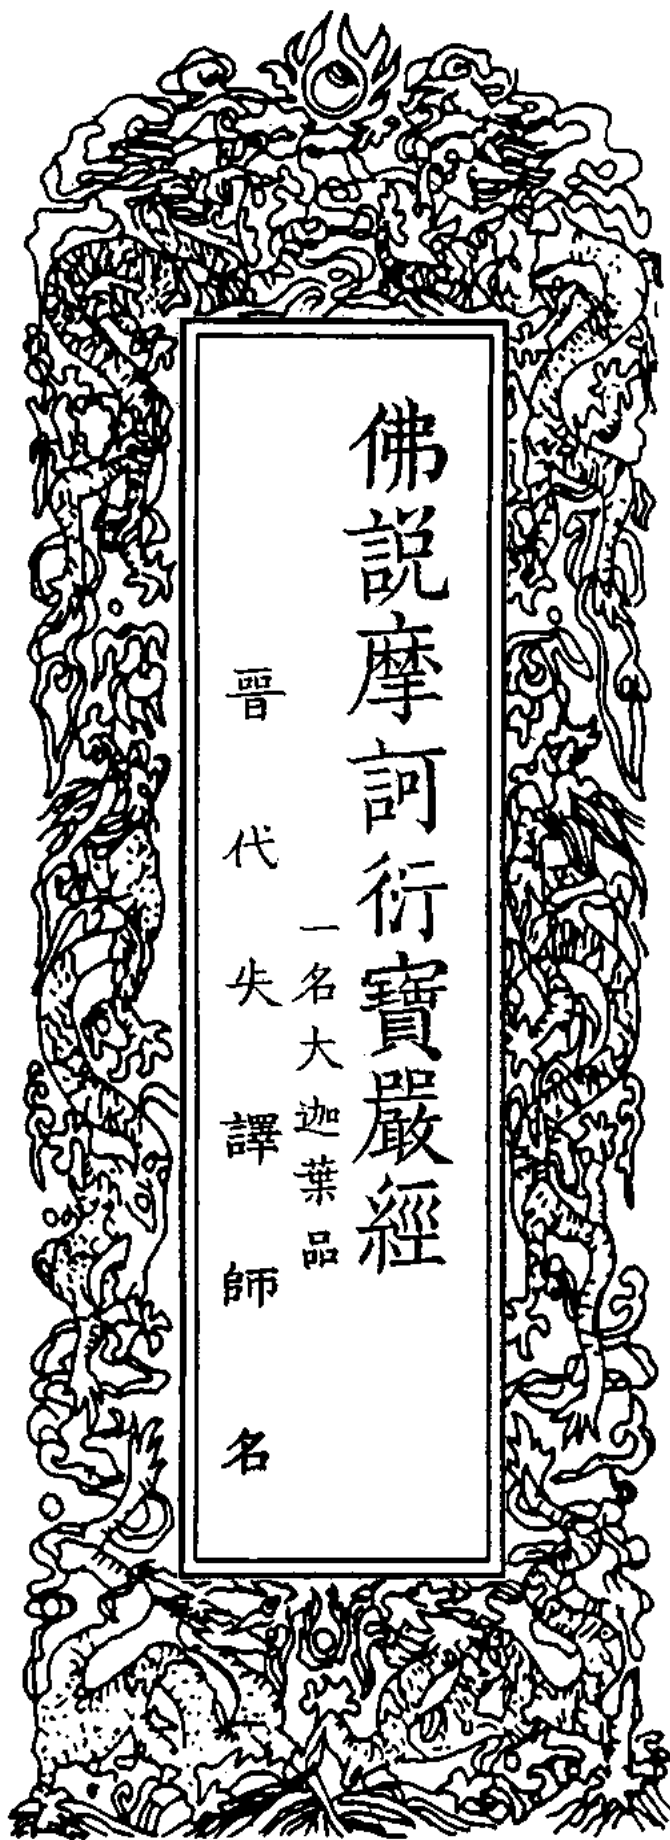 佛説摩訶衍寶嚴經
一名大迦葉品
晉代失譯師名